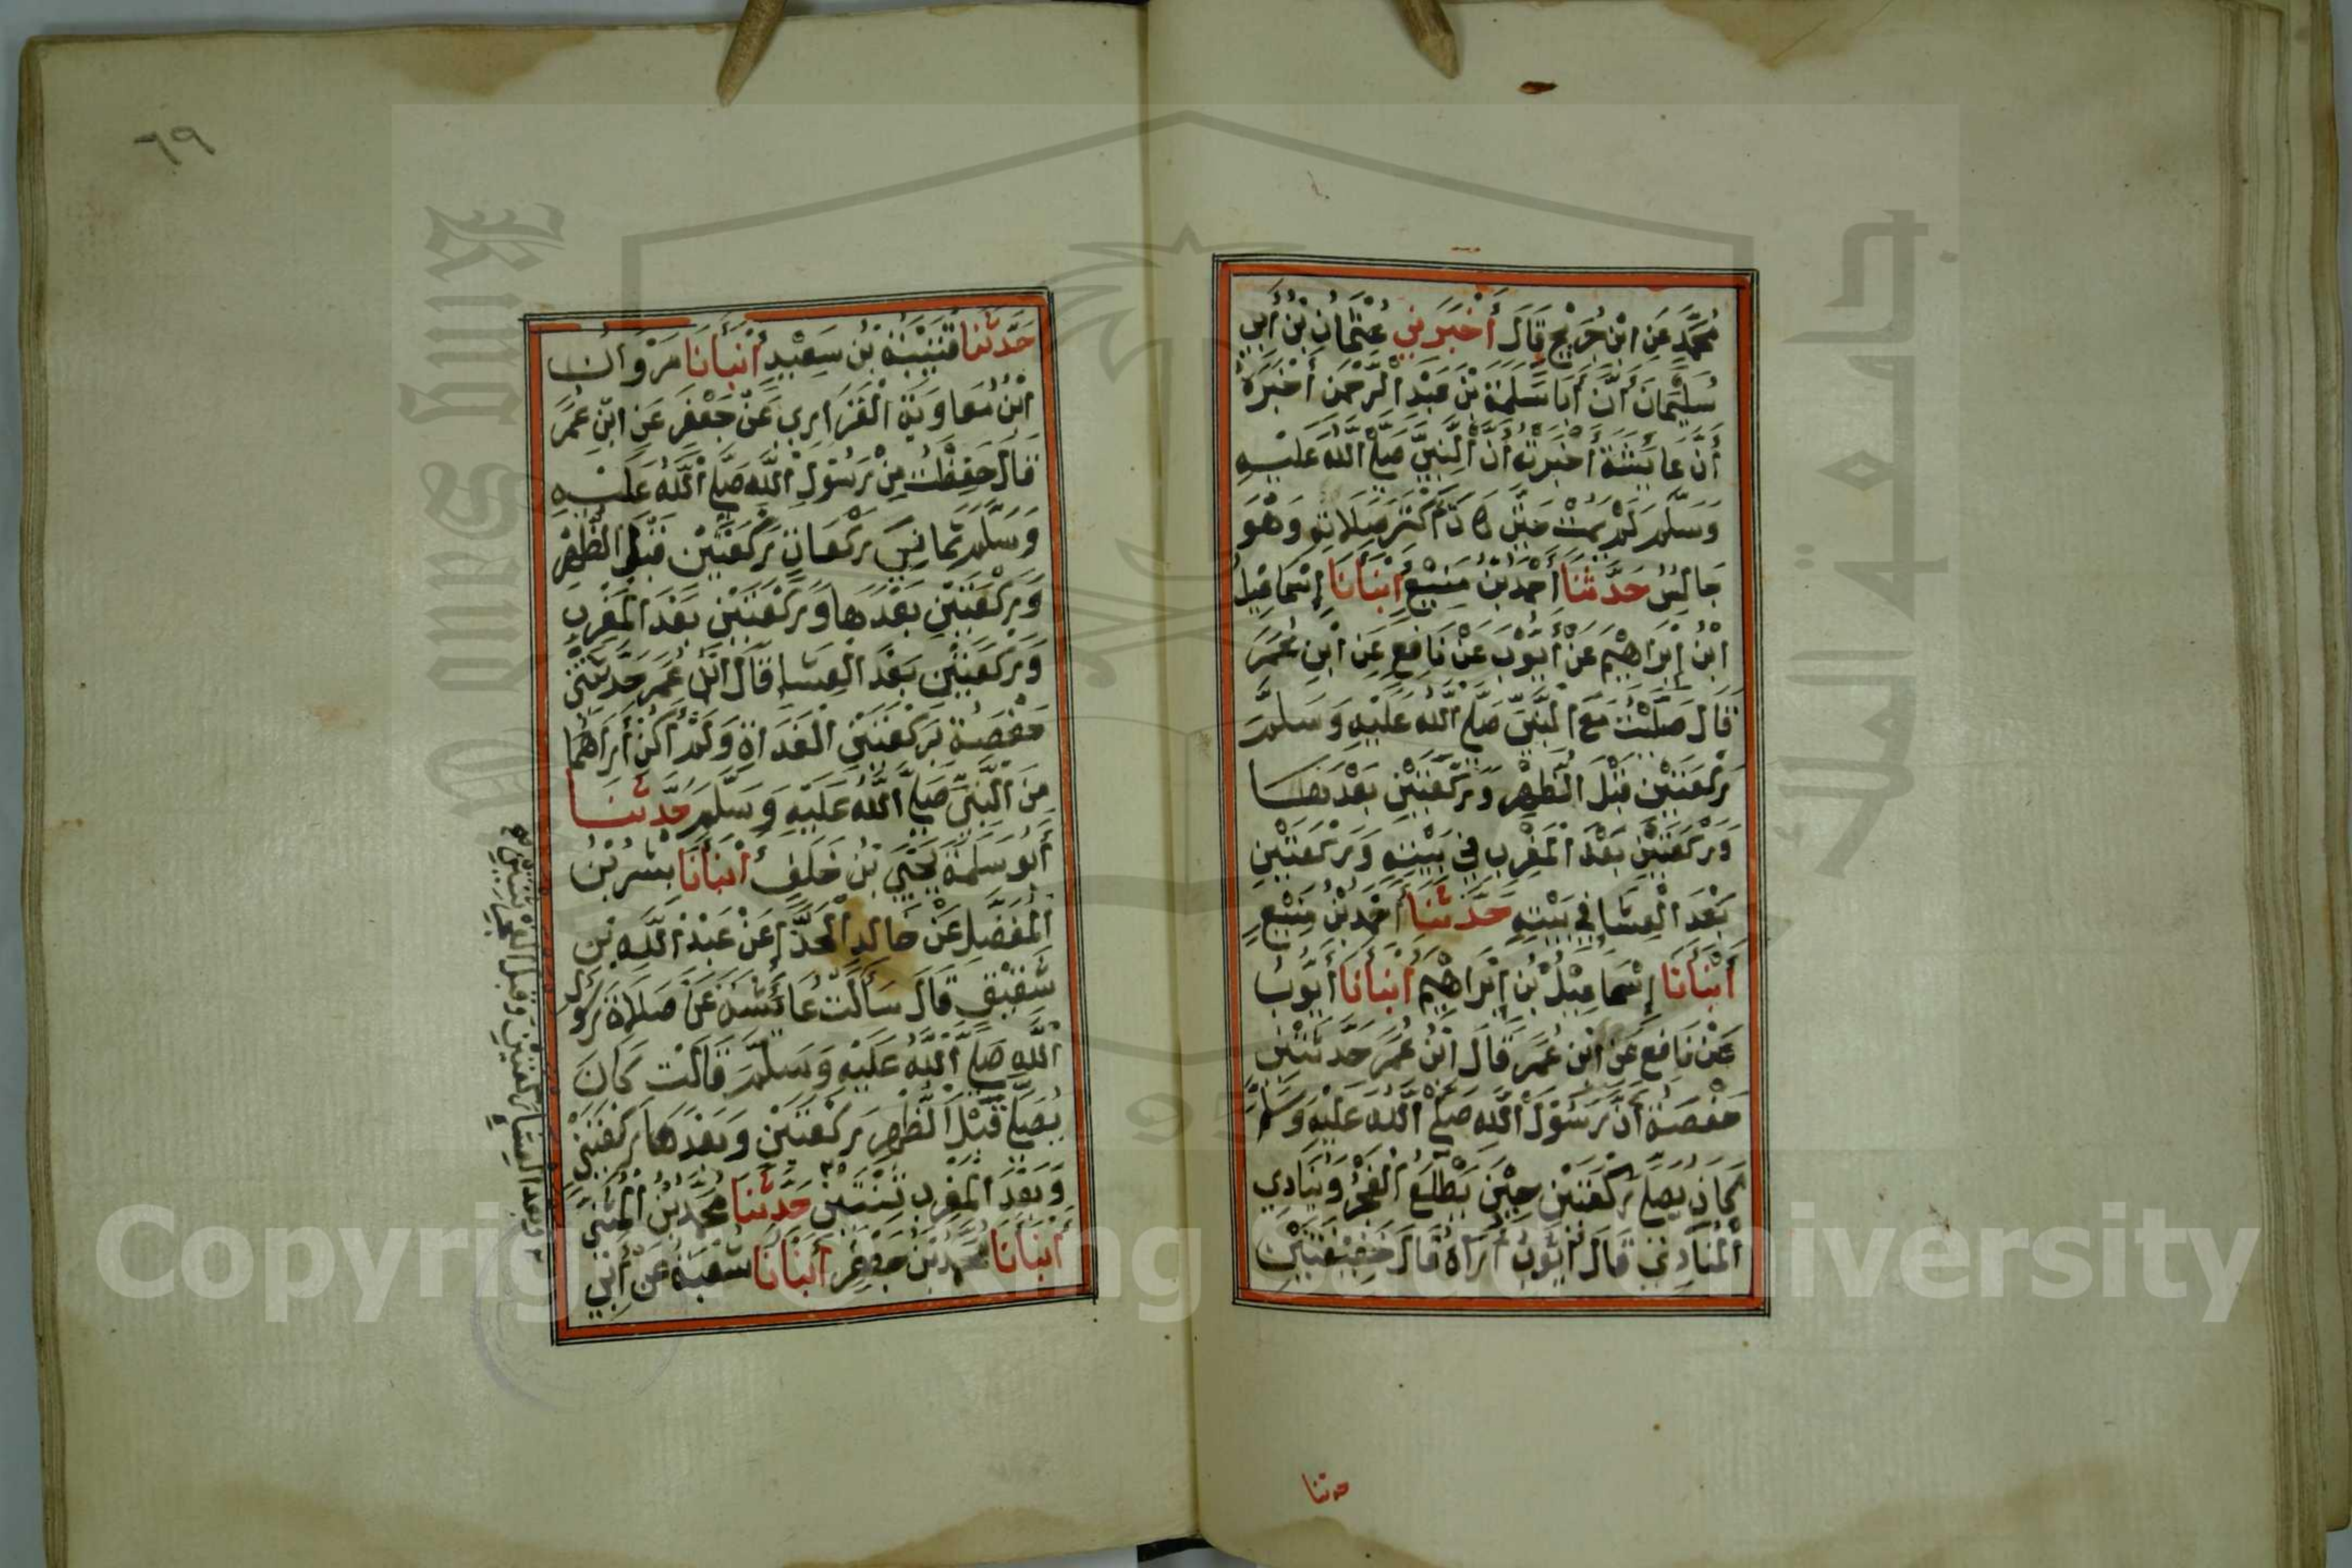 مُحَمَّدٍ عَنِ ابْنِ جُرَيْجٍ قَالَ أَخْبَرَنِي عُثْمَانُ بْنُ أَبِي
سُلَيْمَانَ أَنَّ أَبَا سَلَمَةَ بْنَ عَبْدِ الرَّحْمَنِ أَخْبَرَهُ
أَنَّ عَائِشَةَ أَخْبَرَتْهُ أَنَّ النَّبِيَّ صَلَّى اللَّهُ عَلَيْهِ
وَسَلَّمَ لَمْ يَمُتْ حَتَّى كَانَ أَكْثَرُ صَلَاتِهِ وَهُوَ
جَالِسٌ حَدَّثَنَا أَحْمَدُ بْنُ مَنِيعٍ أَنْبَأَنَا إِسْمَاعِيلُ
ابْنُ إِبْرَاهِيمَ عَنْ أَيُّوبَ عَنْ نَافِعٍ عَنِ ابْنِ عُمَرَ
قَالَ صَلَّيْتُ مَعَ النَّبِيِّ صَلَّى اللَّهُ عَلَيْهِ وَسَلَّمَ
رَكْعَتَيْنِ قَبْلَ الظُّهْرِ وَرَكْعَتَيْنِ بَعْدَهَا
وَرَكْعَتَيْنِ بَعْدَ الْمَغْرِبِ فِي بَيْتِهِ وَرَكْعَتَيْنِ
بَعْدَ الْعِشَا فِي بَيْتِهِ حَدَّثَنَا أَحْمَدُ بْنُ مَنِيعٍ
أَنْبَأَنَا إِسْمَاعِيلُ بْنُ إِبْرَاهِيمَ أَنْبَأَنَا أَيُّوبُ
عَنْ نَافِعٍ عَنِ ابْنِ عُمَرَ قَالَ ابْنُ عُمَرَ حَدَّثَتْنِي
حَفْصَةُ أَنَّ رَسُولَ اللَّهِ صَلَّى اللَّهُ عَلَيْهِ وَسَلَّمَ
كَانَ يُصَلِّي رَكْعَتَيْنِ حِينَ يَطْلُعُ الْفَجْرُ وَيُنَادِي
الْمُنَادِي قَالَ أَيُّوبُ أُرَاهُ قَالَ خَفِيفَتَيْنِ
حدثنا
٦٩
حَدَّثَنَا قُتَيْبَةُ بْنُ سَعِيدٍ أَنْبَأَنَا مَرْوَانُ
ابْنُ مُعَاوِيَةَ الْفَزَارِي عَنْ جَعْفَرَ عَنِ ابْنِ عُمَرَ
قَالَ حَفِظْتُ مِنْ رَسُولِ اللَّهِ صَلَّى اللَّهُ عَلَيْهِ
وَسَلَّمَ ثَمَانِيَ رَكَعَاتٍ رَكْعَتَيْنِ قَبْلَ الظُّهْرِ
وَرَكْعَتَيْنِ بَعْدَهَا وَرَكْعَتَيْنِ بَعْدَ الْمَغْرِبِ
وَرَكْعَتَيْنِ بَعْدَ الْعِشَا قَالَ ابْنُ عُمَرَ حَدَّثَتْنِي
حَفْصَةُ بِرَكْعَتَيِ الْغَدَاةِ وَلَمْ أَكُنْ أَرَاهُمَا
مِنَ النَّبِيِّ صَلَّى اللَّهُ عَلَيْهِ وَسَلَّمَ حَدَّثَنَا
أَبُو سَلَمَةَ يَحْيَى بْنُ خَلَفٍ أَنْبَأَنَا بِشْرُ بْنُ
الْمُفَضَّلِ عَنْ خَالِدِ الْحَذَّا عَنْ عَبْدِ اللَّهِ بْنِ
شَقِيقٍ قَالَ سَأَلْتُ عَائِشَةَ عَنْ صَلَاةِ رَسُولِ
اللَّهِ صَلَّى اللَّهُ عَلَيْهِ وَسَلَّمَ قَالَتْ كَانَ
يُصَلِّي قَبْلَ الظُّهْرِ رَكْعَتَيْنِ وَبَعْدَهَا رَكْعَتَيْنِ
وَبَعْدَ الْمَغْرِبِ ثِنْتَيْنِ حَدَّثَنَا مُحَمَّدُ بْنُ الْمُثَنَّى
أَنْبَأَنَا مُحَمَّدُ بْنُ جَعْفَرٍ أَنْبَأَنَا شُعْبَةُ عَنْ أَبِي
وبعد العشاء ركعتين وقبل الفجر ثنتين
King Saud University
جامعة الملك
Copyright © King Saud University